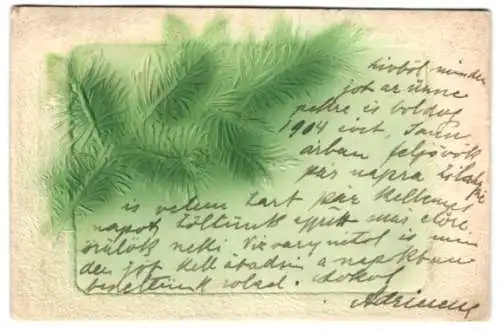 szivböl minden
jót az ünne
pekre is boldog
1904 évet, Janu
árban feljövök
pár napra
is velem tart pár kellemes
napot töltünk együtt már előre
örülök neki Vizvarynétol is min
den jót kell átadni a napokban
beszéltünk rolad. Csokol
Adrienne